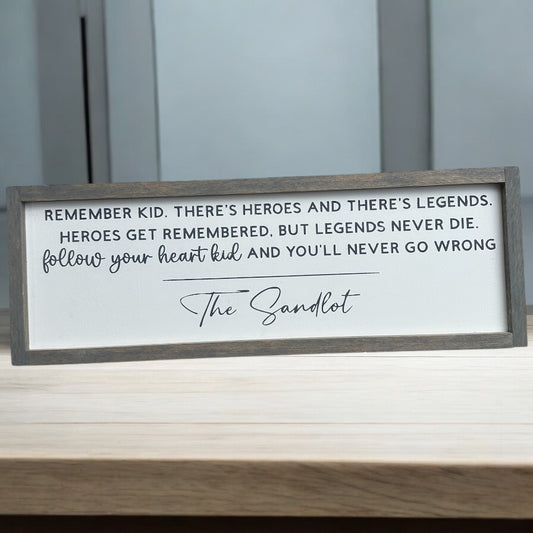 REMEMBER KID. THERE'S HEROES AND THERE'S LEGENDS.
HEROES GET REMEMBERED, BUT LEGENDS NEVER DIE.
follow your heart kid AND YOU'LL NEVER GO WRONG
The Sandlot